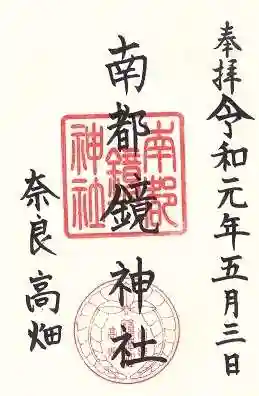 奉拝令和元年五月三日
南都鏡神社
奈良高畑
南都
鏡
神社